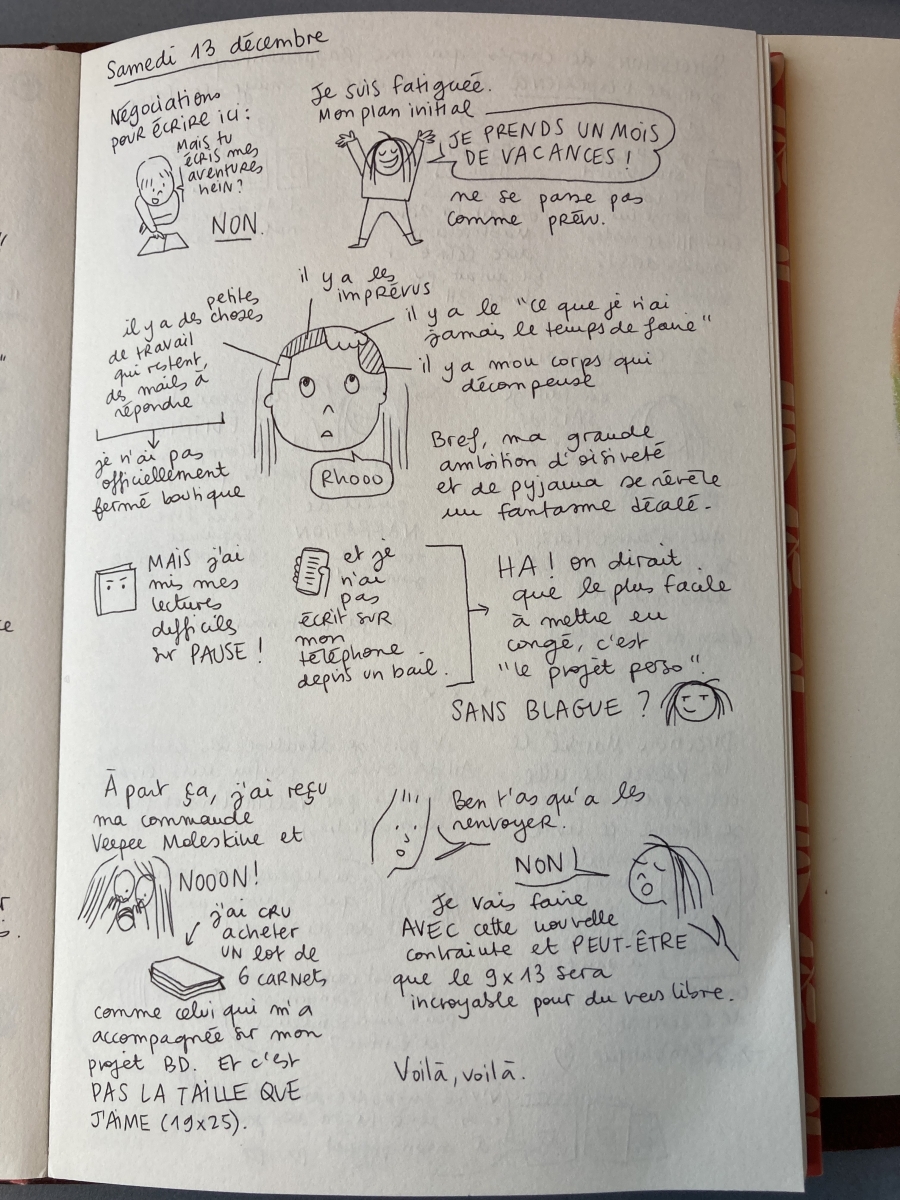 Samedi 13 décembre
Négociations
pour écrire ici :
Mais tu
écris mes
aventures
hein ?
NON.
Je suis fatiguée.
Mon plan initial
JE PRENDS UN MOIS
DE VACANCES !
ne se passe pas
comme prévu.
il y a des petites
choses
de travail
qui restent,
des mails à
répondre
je n'ai pas
officiellement
fermé boutique
il y a les
imprévus
il y a le "ce que je n'ai
jamais le temps de faire"
il y a mon corps qui
décompense
Rhooo
Bref, ma grande
ambition d'oisiveté
et de pyjama se révèle
un fantasme décalé.
MAIS j'ai
mis mes
lectures
difficils
sr PAUSE !
et je
n'ai
pas
écrit sur
mon
téléphone
depuis un bail.
HA ! on dirait
que le plus facile
à mettre en
congé, c'est
"le projet perso".
SANS BLAGUE ?
À part ça, j'ai reçu
ma commande
Veepee Moleskine et
NOOON !
j'ai cru
acheter
UN lot de
6 carnets
comme celui qui m'a
accompagnée sr mon
projet BD. Et c'est
PAS LA TAILLE QUE
J'AIME (19x25).
Ben t'as qu'a les
renvoyer.
NON !
Je vais faire
AVEC cette nouvelle
contrainte et PEUT-ÊTRE
que le 9x13 sera
incroyable pour du vers libre.
Voilà, voilà.